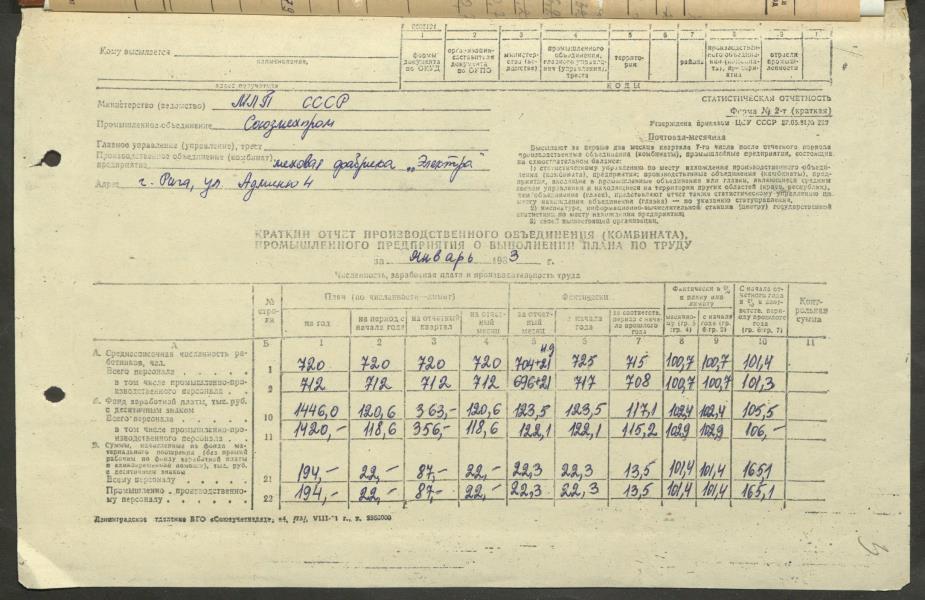 Кому высылается
наименование,
адрес получателя
2 3 4 5 6 7 8 9
формы документа по ОКУД
организации-составителя документа по ОКПО
министерства (ведомства)
промышленного объединения, главного управления (управления), треста
территории
района
производственного объединения (комбината), предприятия
отрасли промышленности
КОДЫ
Министерство (ведомство) МЛП СССР
Промышленное объединение Союзмехпром
Главное управление (управление), трест
Производственное объединение (комбинат)
предприятие меховая фабрика „Электра"
Адрес г. Рига, ул.
СТАТИСТИЧЕСКАЯ ОТЧЕТНОСТЬ
Форма № 2-т (краткая)
Утверждена приказом ЦСУ СССР
Почтовая-месячная
Высылают за первые два месяца квартала 7-го числа после отчетного периода
производственные объединения (комбинаты), промышленные предприятия, состоящие
на самостоятельном балансе:
1) статистическому управлению по месту нахождения производственного объеди-
нения (комбината), предприятия;
2) министерству, информационно-вычислительной станции (центру) государственной
статистики по месту нахождения предприятия;
3) своей вышестоящей организации.
КРАТКИЙ ОТЧЕТ ПРОИЗВОДСТВЕННОГО ОБЪЕДИНЕНИЯ (КОМБИНАТА),
ПРОМЫШЛЕННОГО ПРЕДПРИЯТИЯ О ВЫПОЛНЕНИИ ПЛАНА ПО ТРУДУ
за январь 1983 г.
Численность, заработная плата и производительность труда
№ строки
План (по численности—лимит)
Фактически
Фактически в % к плану или лимиту
С начала отчетного года в % к соответств. периоду прошлого года (гр. 6, гр. 7)
Контрольная сумма
на год
на период с начала года
на отчетный квартал
на отчетный месяц
за отчетный месяц
с начала года
за соответств. период с начала прошлого года
месячному (гр. 5 гр. 4)
с начала года (гр. 6 гр. 2)
А Б 1 2 3 4 5 6 7 8 9 10 11
А. Среднесписочная численность ра-
ботников, чел.
Всего персонала 1 720 720 720 720 704+21 725 715 100,7 100,7 101,4
в том числе промышленно-про-
изводственного персонала 2 712 712 712 712 696+21 717 708 100,7 100,7 101,3
Б. Фонд заработной платы, тыс. руб.
с десятичным знаком
Всего персонала 10 1446,0 120,6 363,- 120,6 123,5 123,5 117,1 102,4 102,4 105,5
в том числе промышленно-про-
изводственного персонала 11 1420,- 118,6 356,- 118,6 122,1 122,1 115,2 102,9 102,9 106,-
В. Суммы, начисленные из фонда ма-
териального поощрения (без премий
рабочим из фонда заработной платы
и единовременной помощи), тыс. руб.
с десятичным знаком
Всему персоналу 21 194,- 22,- 87,- 22,- 22,3 22,3 13,5 101,4 101,4 165,1
Промышленно-производственно-
му персоналу 22 194,- 22,- 87,- 22,- 22,3 22,3 13,5 101,4 101,4 165,1
Ленинградское отделение ВГО «Союзучетиздат»